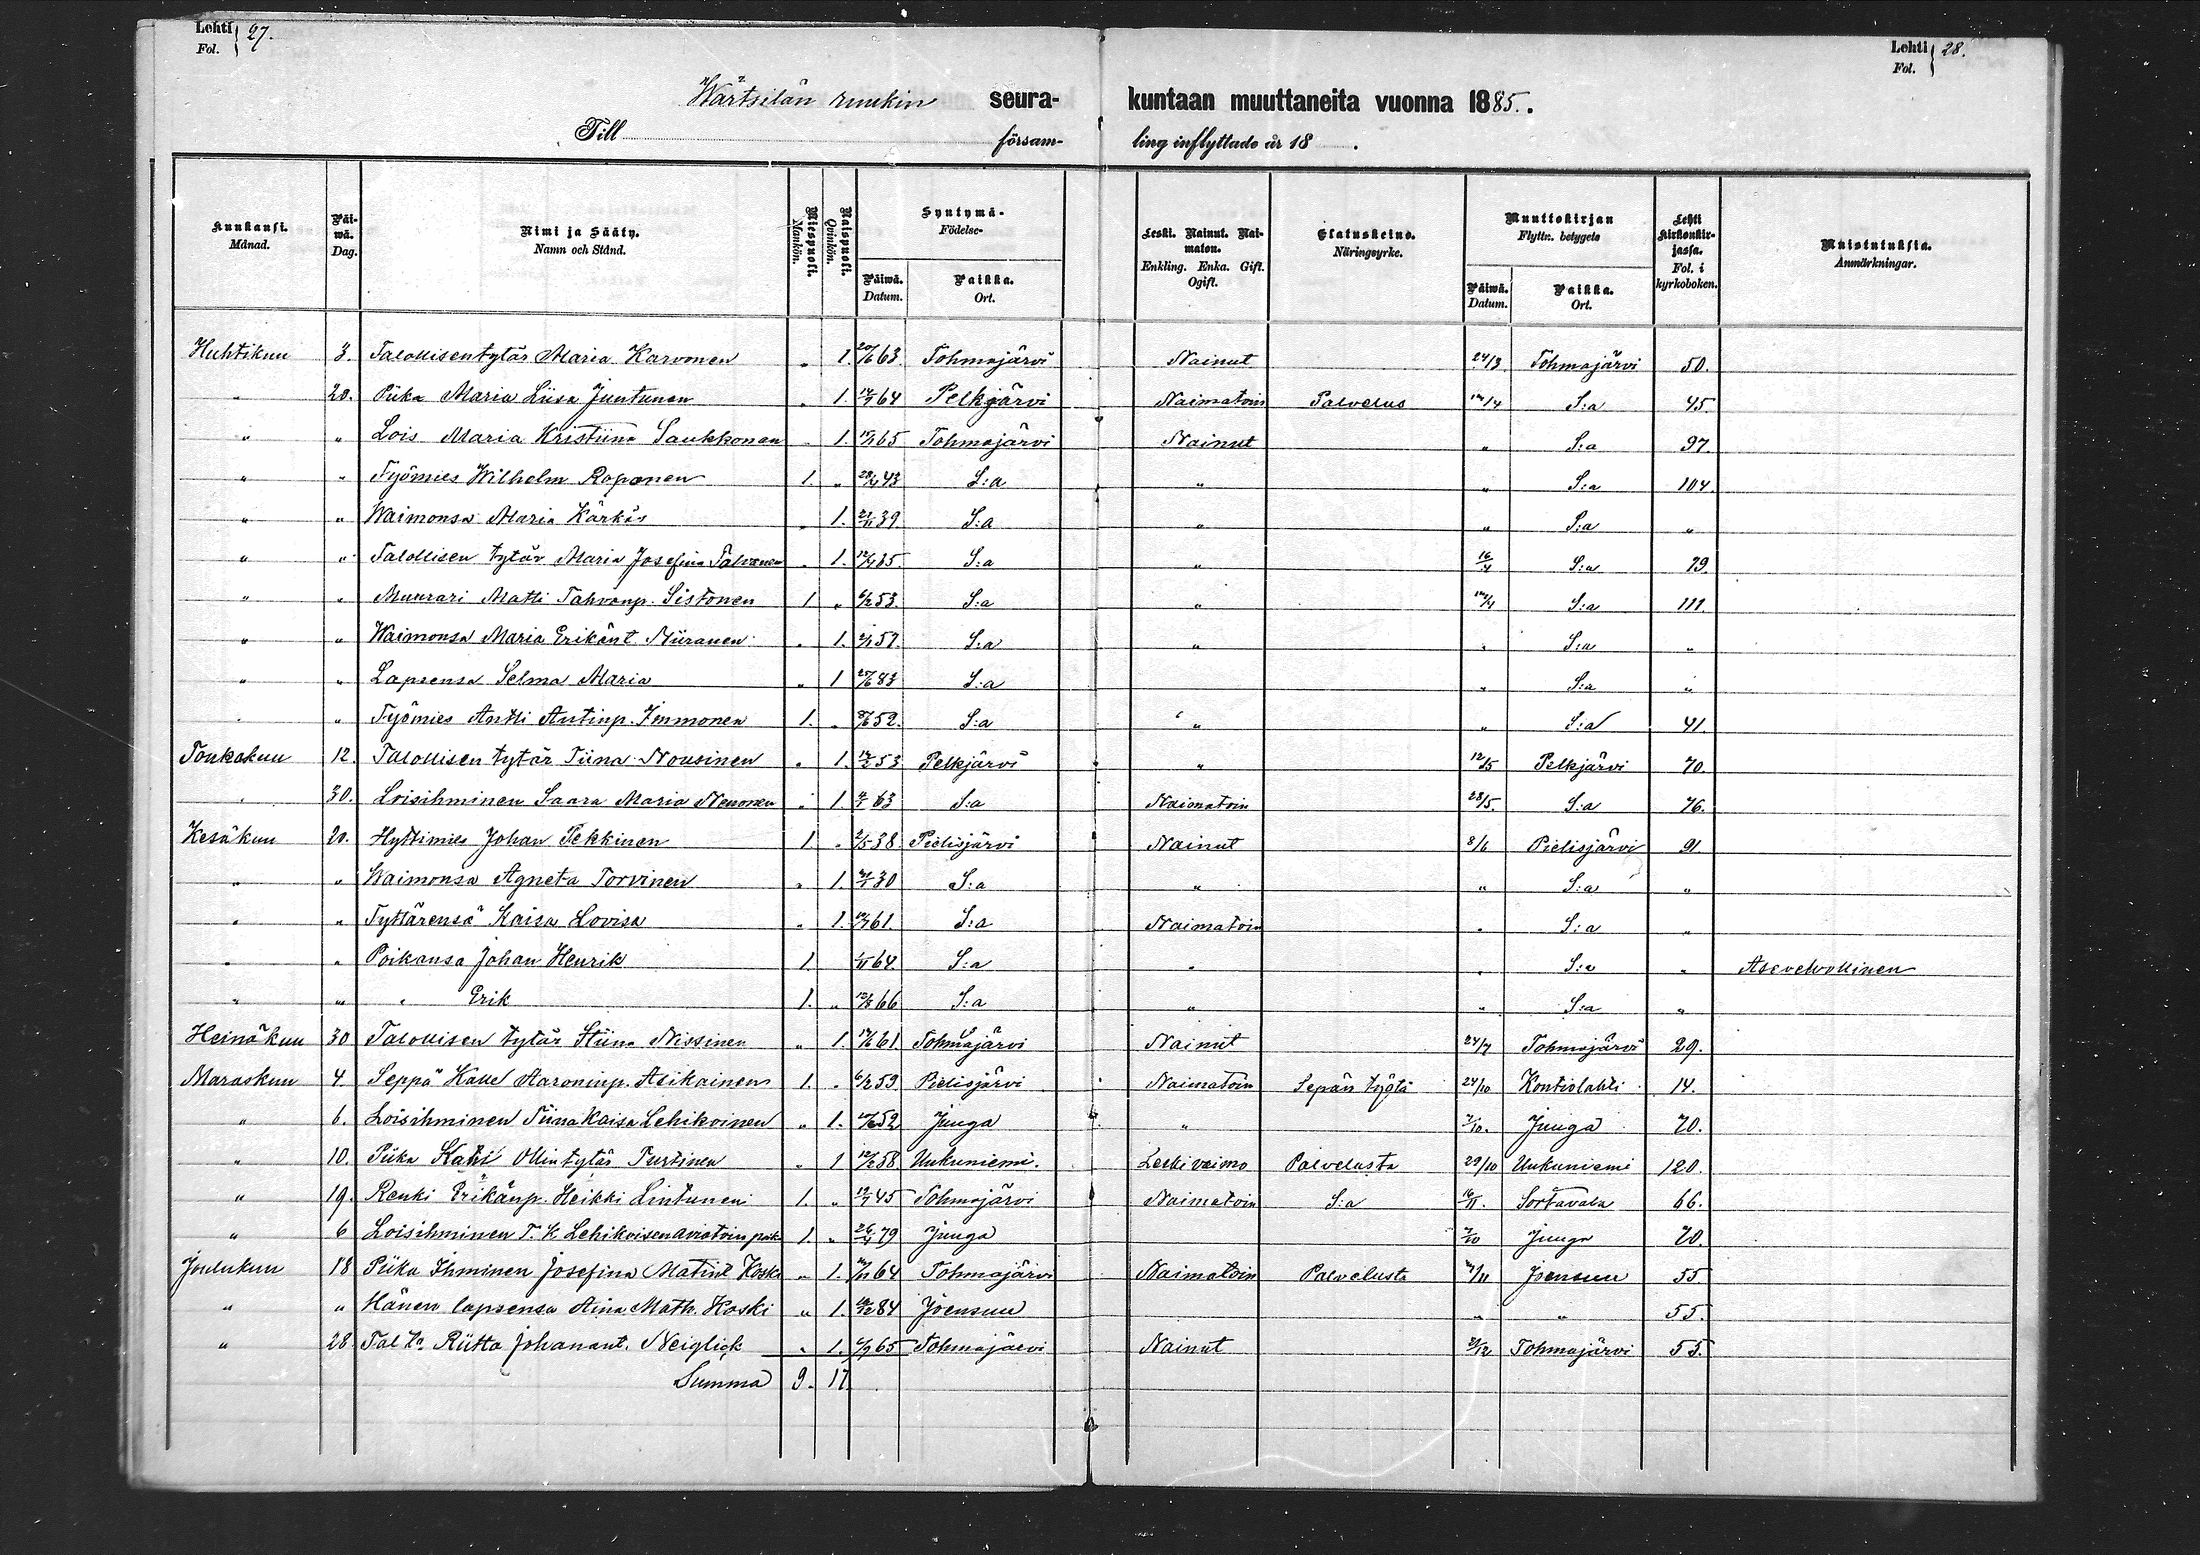 Lehti Fol. 27.
Lehti Fol. 28.
Wärtsilän ruukin seura- kuntaan muuttaneita vuonna 1885.
Till församling inflyttade år 18 .
Kuukausi. Månad. Päiwä. Dag. Nimi ja Sääty. Namn och Stånd. Miespuoli. Mankön. Naispuoli. Qvinkön. Syntymä- Födelse- Päiwä. Datum. Paikka. Ort. Leski. Nainut. Naimaton. Enkling. Enka. Gift. Ogift. Elatuskeino. Näringsyrke. Muuttokirjan Flyttn. betygets Päiwä. Datum. Paikka. Ort. Lehti Kirkonkirjassa. Fol. i kyrkoboken. Muistutuksia. Anmärkningar.
Huhtikuu 3. Talollisentytär Maria Karvonen " 1. 63. Tohmajärvi Nainut 24/3 Tohmajärvi 50.
" 20. Piika Maria Liisa Juntunen " 1. 64 Pelkjärvi Naimatoin Palvelus 14/4 S:a 45
" " Lois Maria Kristiina Saukkonen " 1. 65 Tohmajärvi Nainut " S:a 97.
" " Työmies Wilhelm Roponen 1. " 43 S:a " " S:a 104.
" " Waimonsa Maria Kärkäs " 1. 39 S:a " " S:a "
" " Talollisen tytär Maria Josefina " 1. 35. S:a " 16/4 S:a 79.
" " Muurari Matti Tahvanp. Sistonen 1 " 6/2 53. S:a " 14/4 S:a 111.
" " Waimonsa Maria Erikänt. Niiranen " 1. 57. S:a " " S:a "
" " Lapsensa Selma Maria " 1 83 S:a " S:a "
" " Työmies Antti Antinp. Immonen 1. " 52. S:a " " S:a 41.
Toukokuu 12. Talollisen tytär Tiina Nousinen " 1. 53 Pelkjärvi " 12/5 Pelkjärvi 70.
" 30. Loisihminen Saara Maria Nenonen " 1. 63 S:a Naimatoin 28/5. S:a 76.
Kesäkuu 20. Hyttimies Johan Pekkinen 1. " 2/5 38 Pielisjärvi Nainut 8/6 Pielisjärvi 91.
" " Waimonsa Agneta Torvinen " 1. 30 S:a " " S:a "
" " Tyttärensä Kaisa Lovisa " 1. 61. S:a Naimatoin " S:a "
" " Poikansa Johan Henrik 1. 64. S:a " " S:a " Asevelvollinen
" " " Erik 1. " 12/8 66 S:a " " S:a "
Heinäkuu 30 Talollisen tytär Stiina Nissinen " 1. 61. Tohmajärvi Nainut 24/7 Tohmajärvi 29.
Maraskuu 4. Seppä Kalle Aaroninp. Asikainen 1. " 59 Pielisjärvi Naimatoin Sepän työtä 24/10 Kontiolahti 14.
" 6. Loisihminen Tiina Kaisa Lehikoinen " 1. 52 Juuga " 7/10. Juuga 70.
" 10. Piika Kati Ollintytär Turtinen " 1 58 Uukuniemi. Leskivaimo Palvelusta 29/10 Uukuniemi 120.
" 19. Renki Erikänp. Heikki Lintunen 1. " 45 Tohmajärvi Naimatoin S:a 16/11. Sortavala 66.
" 6 Loisihminen T. K. Lehikoisen aviotoin 1. " 26/4 79 Juuga 7/10 Juuga 70.
Joulukuu 18 Piika Ihminen Josefina Matint Koski " 1. 64 Tohmajärvi Naimatoin Palvelusta Joensuu 55
" " Hänen lapsensa Aina Math. Koski " 1. 84 Joensuu " " 55.
" 28. Tal Riitta Johanant. Neiglick " 1. 65 Tohmajärvi Nainut 2/12 Tohmajärvi 55.
Summa 9. 17.